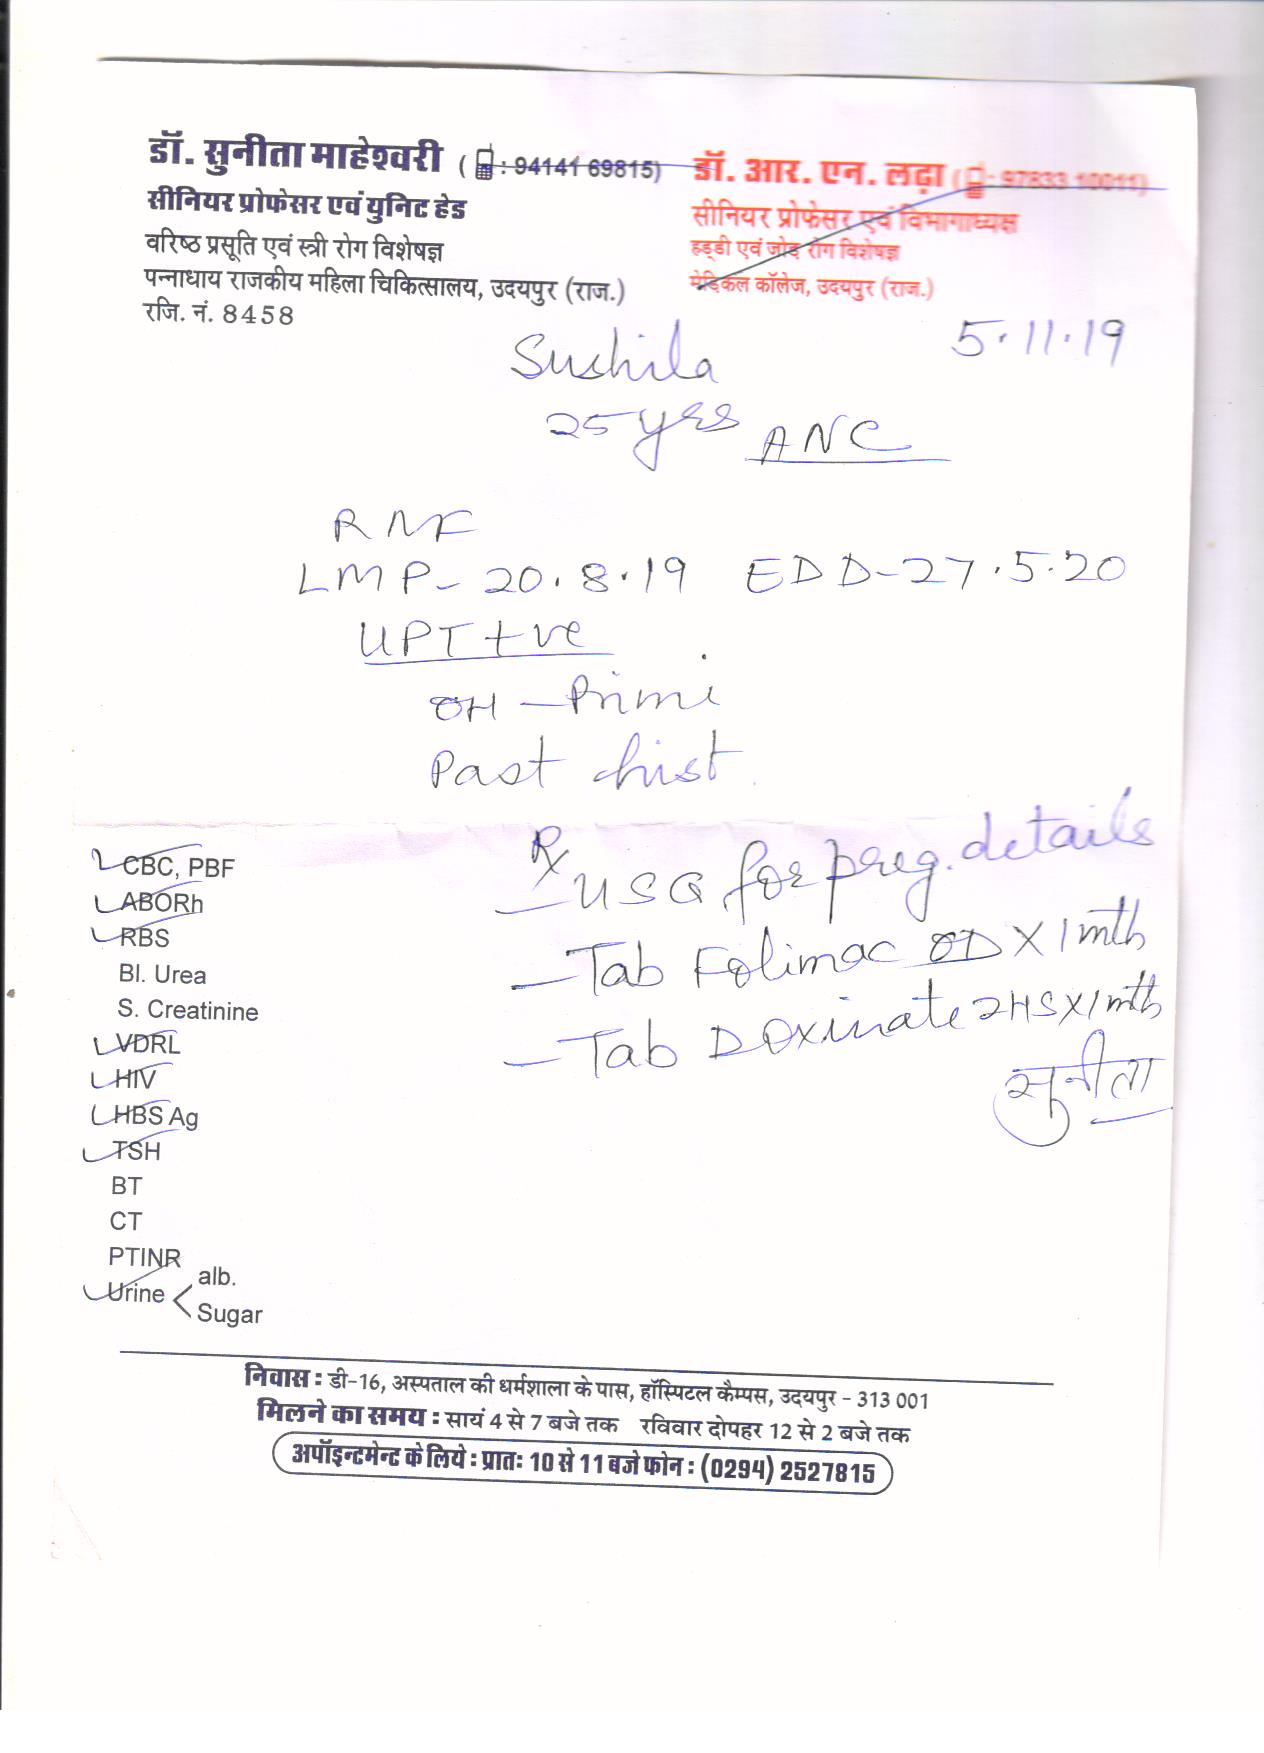 डॉ. सुनीता माहेश्वरी ( : 94141 69815)
सीनियर प्रोफेसर एवं युनिट हेड
वरिष्ठ प्रसूति एवं स्त्री रोग विशेषज्ञ
पन्नाधाय राजकीय महिला चिकित्सालय, उदयपुर (राज.)
रजि. नं. 8458
डॉ. आर. एन. लढ़ा ( : 97833 10011)
सीनियर प्रोफेसर एवं विभागाध्यक्ष
हड्डी एवं जोड रोग विशेषज्ञ
मेडिकल कॉलेज, उदयपुर (राज.)
5.11.19
Sushila
25 yrs ANC
RMF
LMP- 20.8.19 EDD-27.5.20
UPT +ve
OH - Primi
Past hist.
Rx
- USG for preg. details
- Tab Folimac OD X 1 mth
- Tab Doxinate 2HS X 1 mth
सुनीता
CBC, PBF
ABORh
RBS
Bl. Urea
S. Creatinine
VDRL
HIV
HBS Ag
TSH
BT
CT
PTINR
Urine < alb.
Sugar
निवास : डी-16, अस्पताल की धर्मशाला के पास, हॉस्पिटल कैम्पस, उदयपुर - 313 001
मिलने का समय : सायं 4 से 7 बजे तक रविवार दोपहर 12 से 2 बजे तक
अपॉइन्टमेन्ट के लिये : प्रातः 10 से 11 बजे फोन : (0294) 2527815